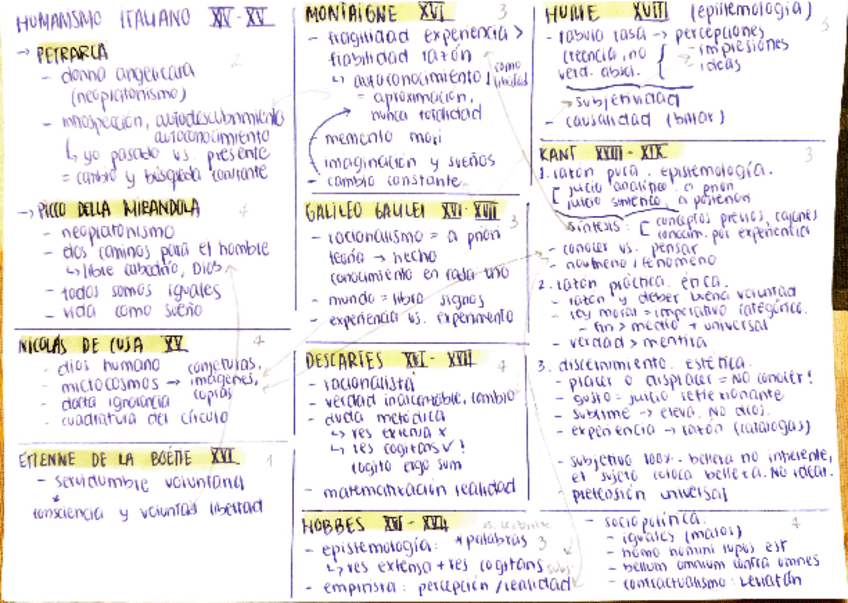 HUMANISMO ITALIANO XIV - XV
→ PETRARCA
- donna angelicata
(neoplatonismo)
- introspección, autodescubrimiento
autoconocimiento
↳ yo pasado vs presente
= cambio y búsqueda constante
→ PICCO DELLA MIRANDOLA
- neoplatonismo
- dos caminos para el hombre
↳ libre albedrío, Dios
- todos somos iguales
- vida como sueño
NICOLÁS DE CUSA XV
- dios humano conjeturas,
- microcosmos → imágenes,
copias
- docta ignorancia
- cuadratura del círculo
ETIENNE DE LA BOÉTIE XVI
- servidumbre voluntaria
consciencia y voluntad libertad
MONTAIGNE XVI
- fragilidad experiencia >
fiabilidad razón
↳ autoconocimiento como libertad
= aproximación,
nunca totalidad
- memento mori
- imaginación y sueños
- cambio constante
GALILEO GALILEI XVI - XVII
- racionalismo = a priori
teoría → hecho
conocimiento en cada uno
- mundo = libro signos
- experiencia vs. experimento
DESCARTES XVI - XVII
- racionalista
- verdad inalcanzable, cambio
- duda metódica
↳ res extensa x
↳ res cogitans ✓ !
cogito ergo sum
- matematización realidad
HOBBES XVI - XVII
- epistemología: * palabras
↳ res extensa + res cogitans
- empirista: percepción / realidad
HUME XVIII (epistemología)
- tabula rasa → percepciones
creencia, no { - impresiones
verd. absol. - ideas
→ subjetividad
- causalidad (billar)
KANT XVIII - XIX
1. razón pura. epistemología.
[ juicio analítico. a priori
juicio sintético. a posteriori
síntesis: [ conceptos previos, cajones
conocim. por experiencia
- conocer vs. pensar
- noúmeno / fenómeno
2. razón práctica. ética.
- razón y deber buena voluntad
- ley moral = imperativo categórico.
- fin > medio + universal
- verdad > mentira
3. discernimiento. estética.
- placer o displacer = NO conocer!
- gusto = juicio reflexionante
- sublime → eleva. NO dios.
- experiencia → razón (catalogas)
- subjetivo 100%. belleza no inherente,
el sujeto coloca belleza. No ideal.
- pretensión universal
- sociopolítica.
- iguales (malos)
- homo homini lupus est
- bellum omnium contra omnes
- contractualismo: Leviatán